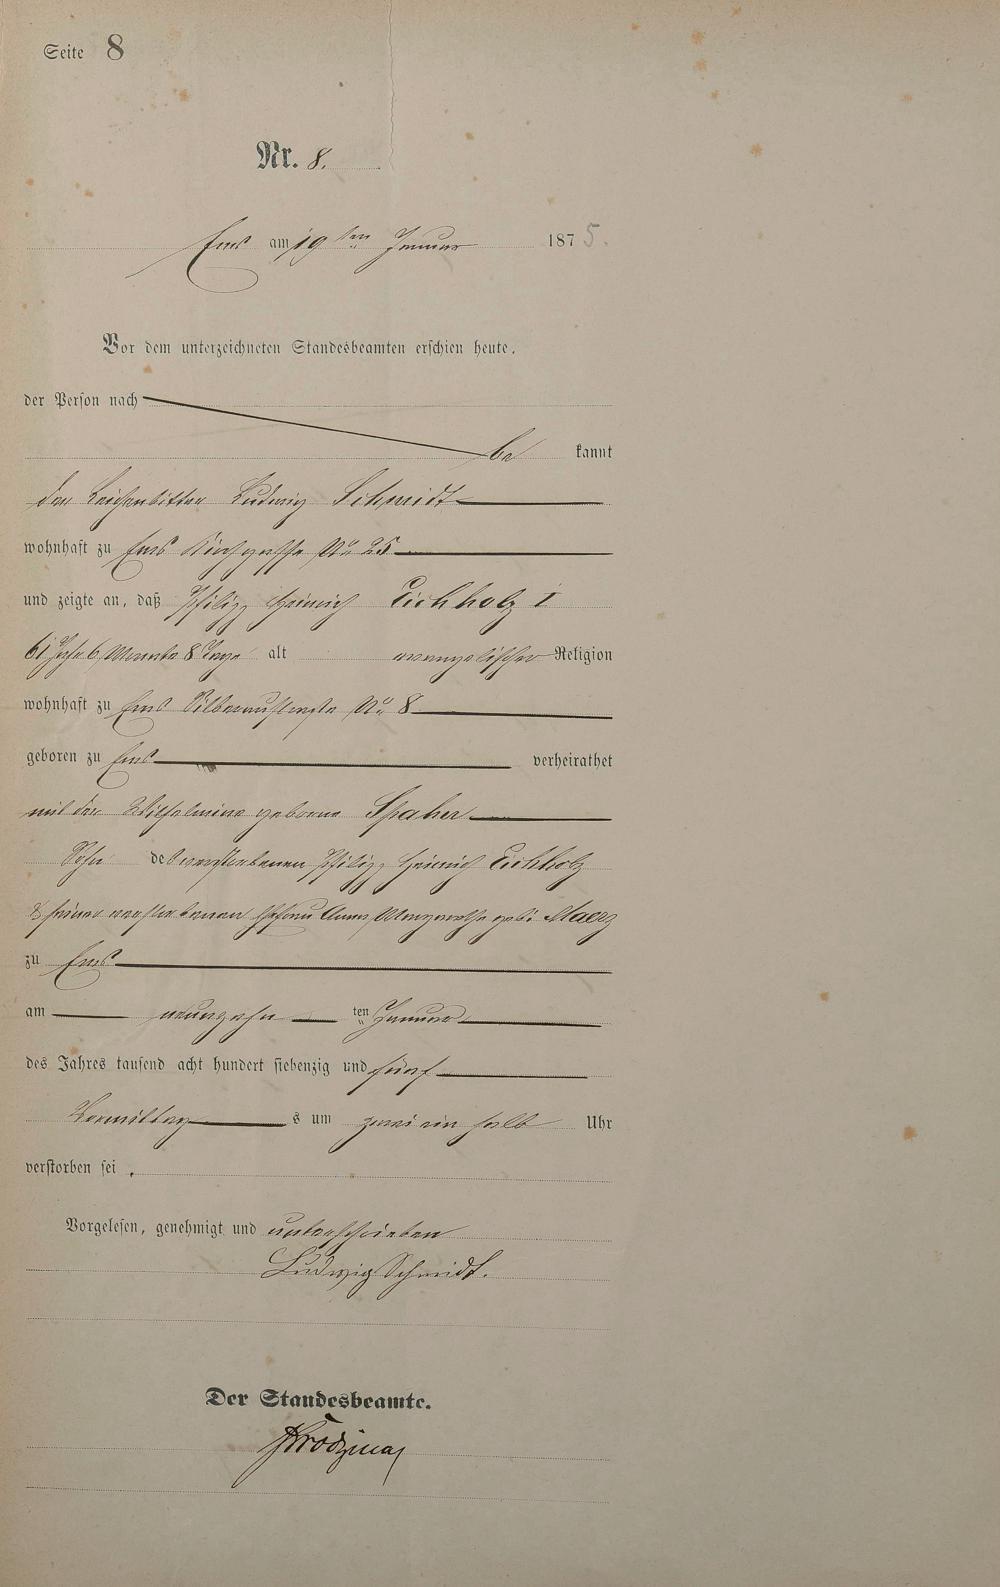 Seite 8
Nr. 8.
Ems am 19ten Januar 1875.
Vor dem unterzeichneten Standesbeamten erschien heute,
der Person nach
be kannt
der Leichenbitter Ludwig Schmidt
wohnhaft zu Ems Kirchgasse No 25
und zeigte an, daß Philipp Heinrich Eichholz I
61 Jahr 6 Monate 8 Tage alt evangelischer Religion
wohnhaft zu Ems Silberaustraße No 8
geboren zu Ems verheirathet
mit der Wilhelmine geborne Spaher
Sohn des verstorbenen Philipp Heinrich Eichholz
& seiner verstorbenen Ehefrau Anna Margarethe geb:
zu Ems
am neunzehn ten Januar
des Jahres tausend acht hundert siebenzig und fünf
Vormittag s um zwei ein halb Uhr
verstorben sei.
Vorgelesen, genehmigt und unterschrieben
Ludwig Schmidt.
Der Standesbeamte.